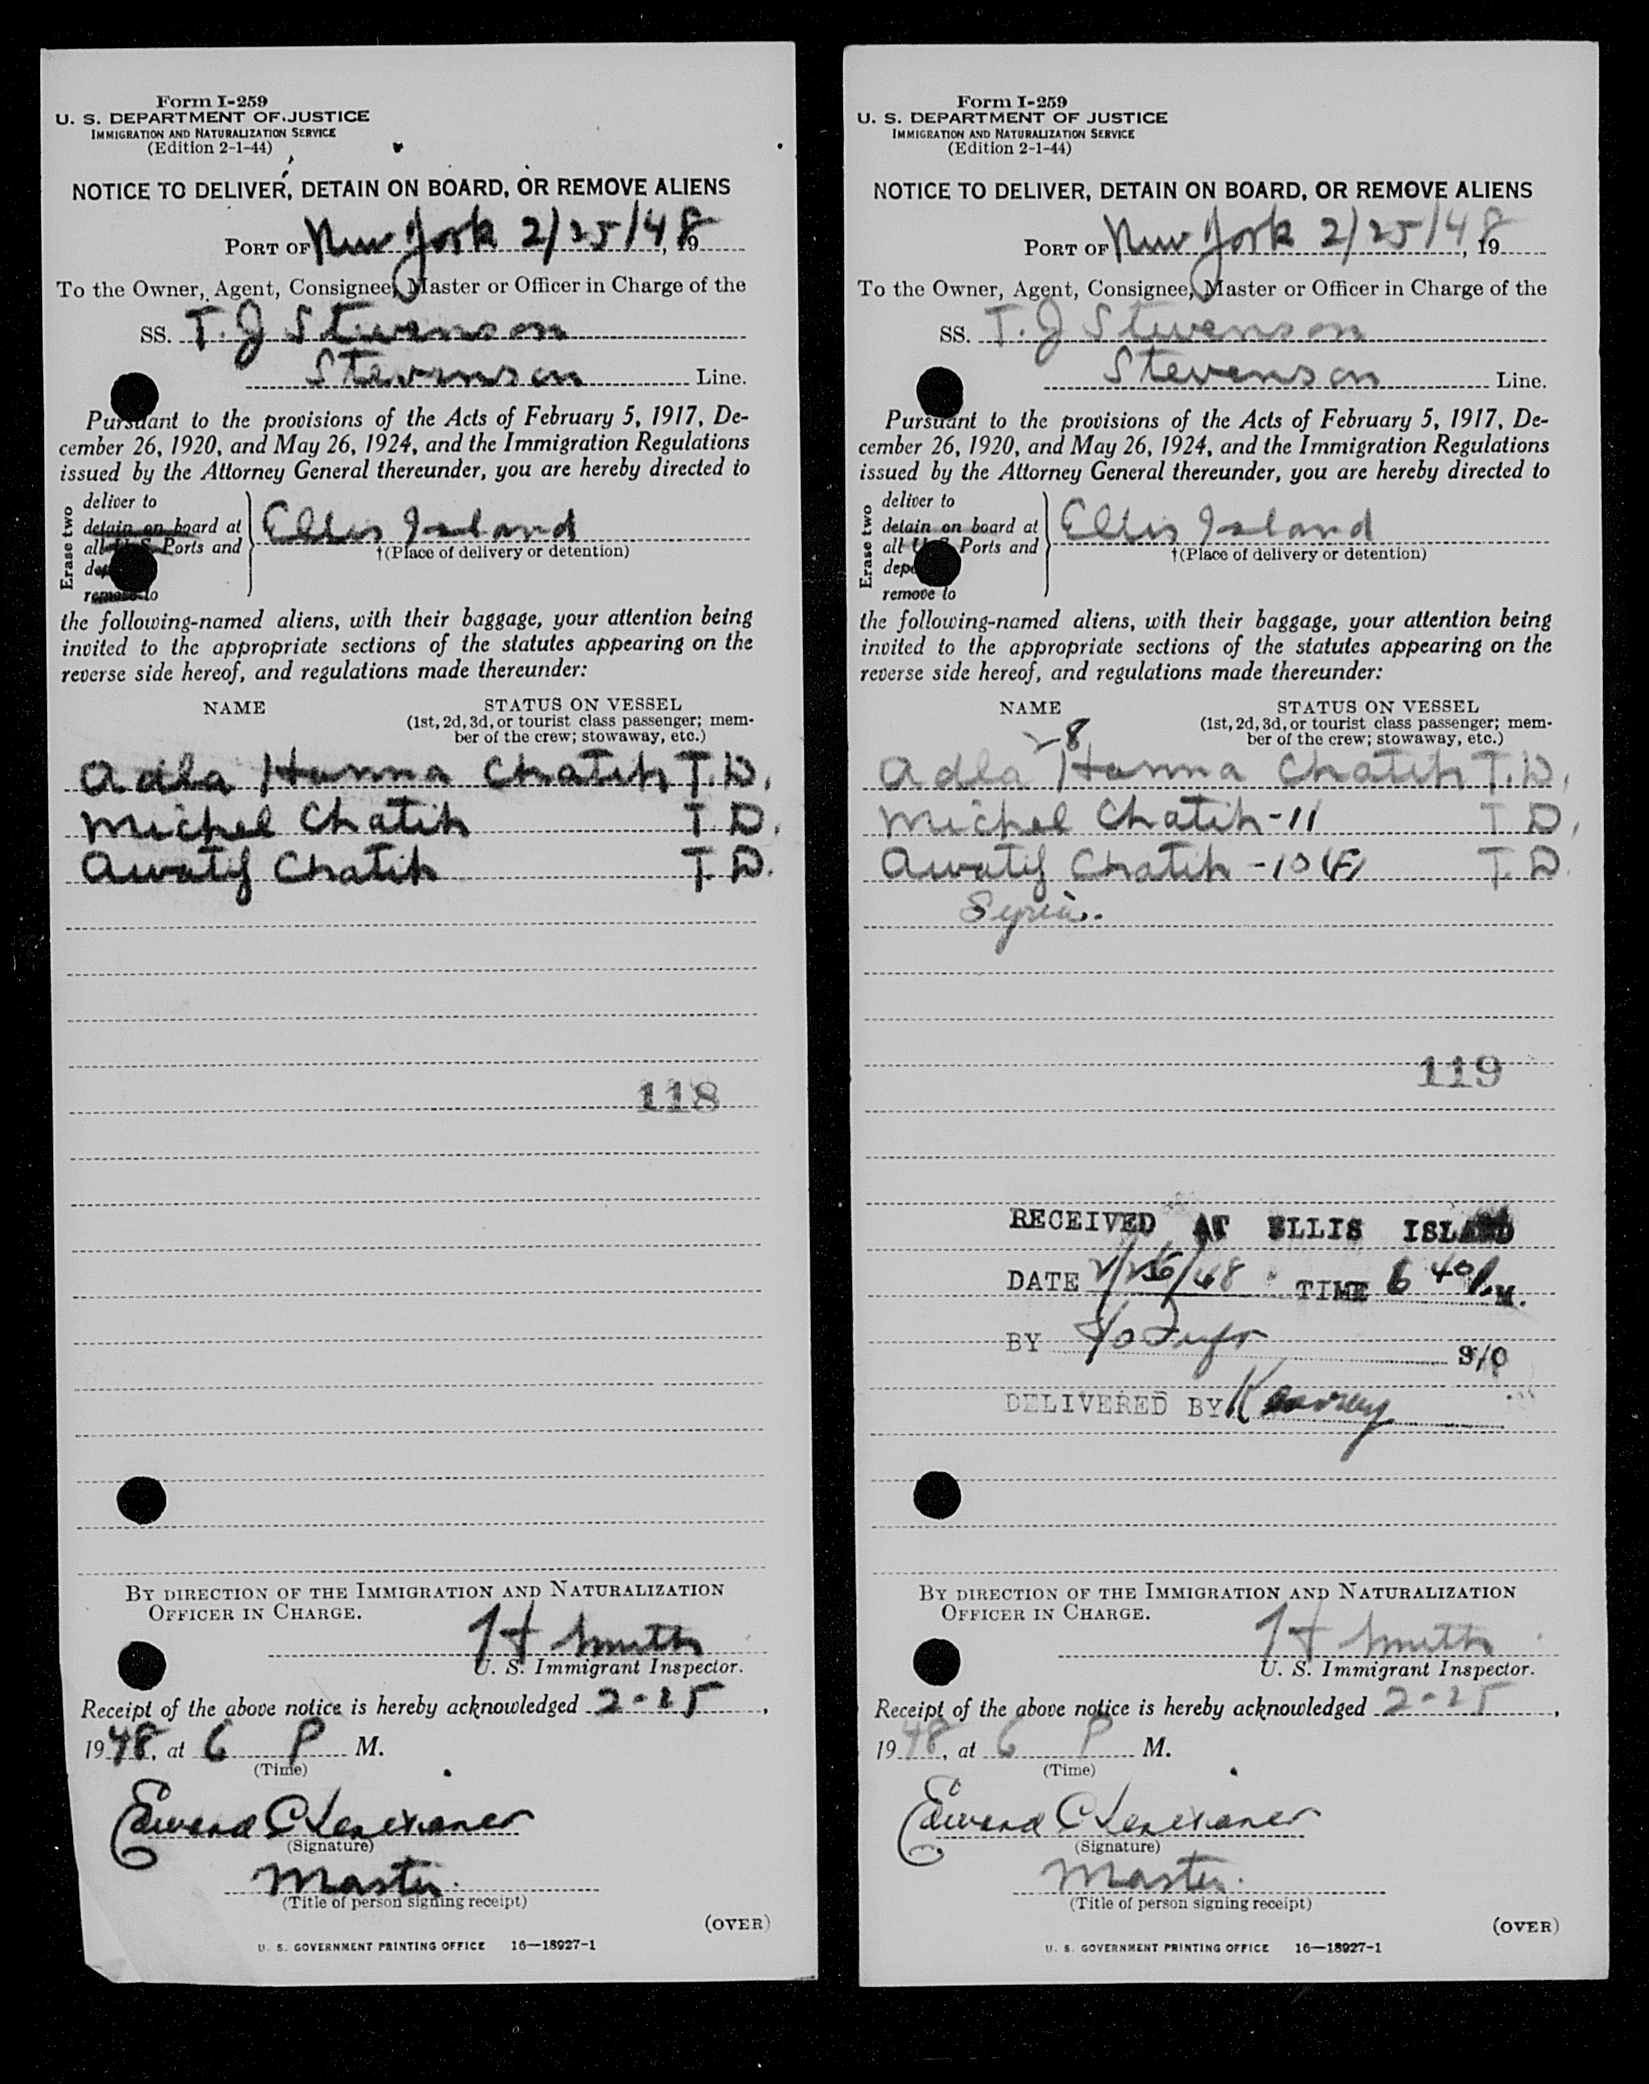 Form I-259
U. S. DEPARTMENT OF JUSTICE
IMMIGRATION AND NATURALIZATION SERVICE
(Edition 2-1-44)
NOTICE TO DELIVER, DETAIN ON BOARD, OR REMOVE ALIENS
PORT OF New York 2/25/48, 19
To the Owner, Agent, Consignee, Master or Officer in Charge of the
SS. T. J Stevenson
Stevenson Line.
Pursuant to the provisions of the Acts of February 5, 1917, De-
cember 26, 1920, and May 26, 1924, and the Immigration Regulations
issued by the Attorney General thereunder, you are hereby directed to
Erase two
deliver to
detain on board at
all U. S. Ports and
remove to
Ellis Island
†(Place of delivery or detention)
the following-named aliens, with their baggage, your attention being
invited to the appropriate sections of the statutes appearing on the
reverse side hereof, and regulations made thereunder:
NAME STATUS ON VESSEL
(1st, 2d, 3d, or tourist class passenger; mem-
ber of the crew; stowaway, etc.)
Adla Hanna Chatih T.D.
Michel Chatih T.D.
Awatif Chatih T.D.
118
BY DIRECTION OF THE IMMIGRATION AND NATURALIZATION
OFFICER IN CHARGE.
Smith
U. S. Immigrant Inspector.
Receipt of the above notice is hereby acknowledged 2-25,
1948, at 6 P M.
(Time)
Edward C
(Signature)
Master.
(Title of person signing receipt)
(OVER)
U. S. GOVERNMENT PRINTING OFFICE 16—18927-1
Form I-259
U. S. DEPARTMENT OF JUSTICE
IMMIGRATION AND NATURALIZATION SERVICE
(Edition 2-1-44)
NOTICE TO DELIVER, DETAIN ON BOARD, OR REMOVE ALIENS
PORT OF New York 2/25/48, 19
To the Owner, Agent, Consignee, Master or Officer in Charge of the
SS. T. J Stevenson
Stevenson Line.
Pursuant to the provisions of the Acts of February 5, 1917, De-
cember 26, 1920, and May 26, 1924, and the Immigration Regulations
issued by the Attorney General thereunder, you are hereby directed to
Erase two
deliver to
detain on board at
all U. S. Ports and
remove to
Ellis Island
†(Place of delivery or detention)
the following-named aliens, with their baggage, your attention being
invited to the appropriate sections of the statutes appearing on the
reverse side hereof, and regulations made thereunder:
NAME STATUS ON VESSEL
(1st, 2d, 3d, or tourist class passenger; mem-
ber of the crew; stowaway, etc.)
28
Adla Hanna Chatih T.D.
Michel Chatih -11 T D,
Awatif Chatih -10 (F) T. D.
Syria.
119
RECEIVED AT ELLIS ISLAND
DATE 2/25/48 TIME 6 40 P.M.
BY S/O
DELIVERED BY
BY DIRECTION OF THE IMMIGRATION AND NATURALIZATION
OFFICER IN CHARGE.
Smith
U. S. Immigrant Inspector.
Receipt of the above notice is hereby acknowledged 2-25,
1948, at 6 P M.
(Time)
Edward C
(Signature)
Master.
(Title of person signing receipt)
(OVER)
U. S. GOVERNMENT PRINTING OFFICE 16—18927-1